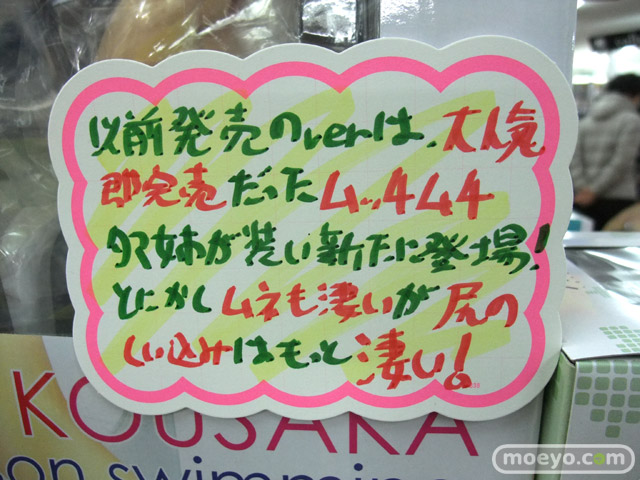 以前発売のverは、大人気
即完売だったムッチムチ
タマ姉が装い新たに登場!
とにかくムネも凄いが尻の
くい込みはもっと凄い!
KOUSAKA
on swimming
moeyo.com